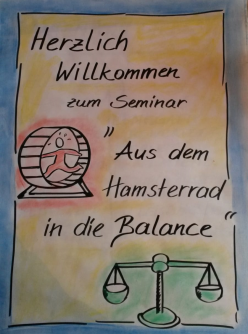 Herzlich
Willkommen
zum Seminar
"Aus dem
Hamsterrad
in die Balance"